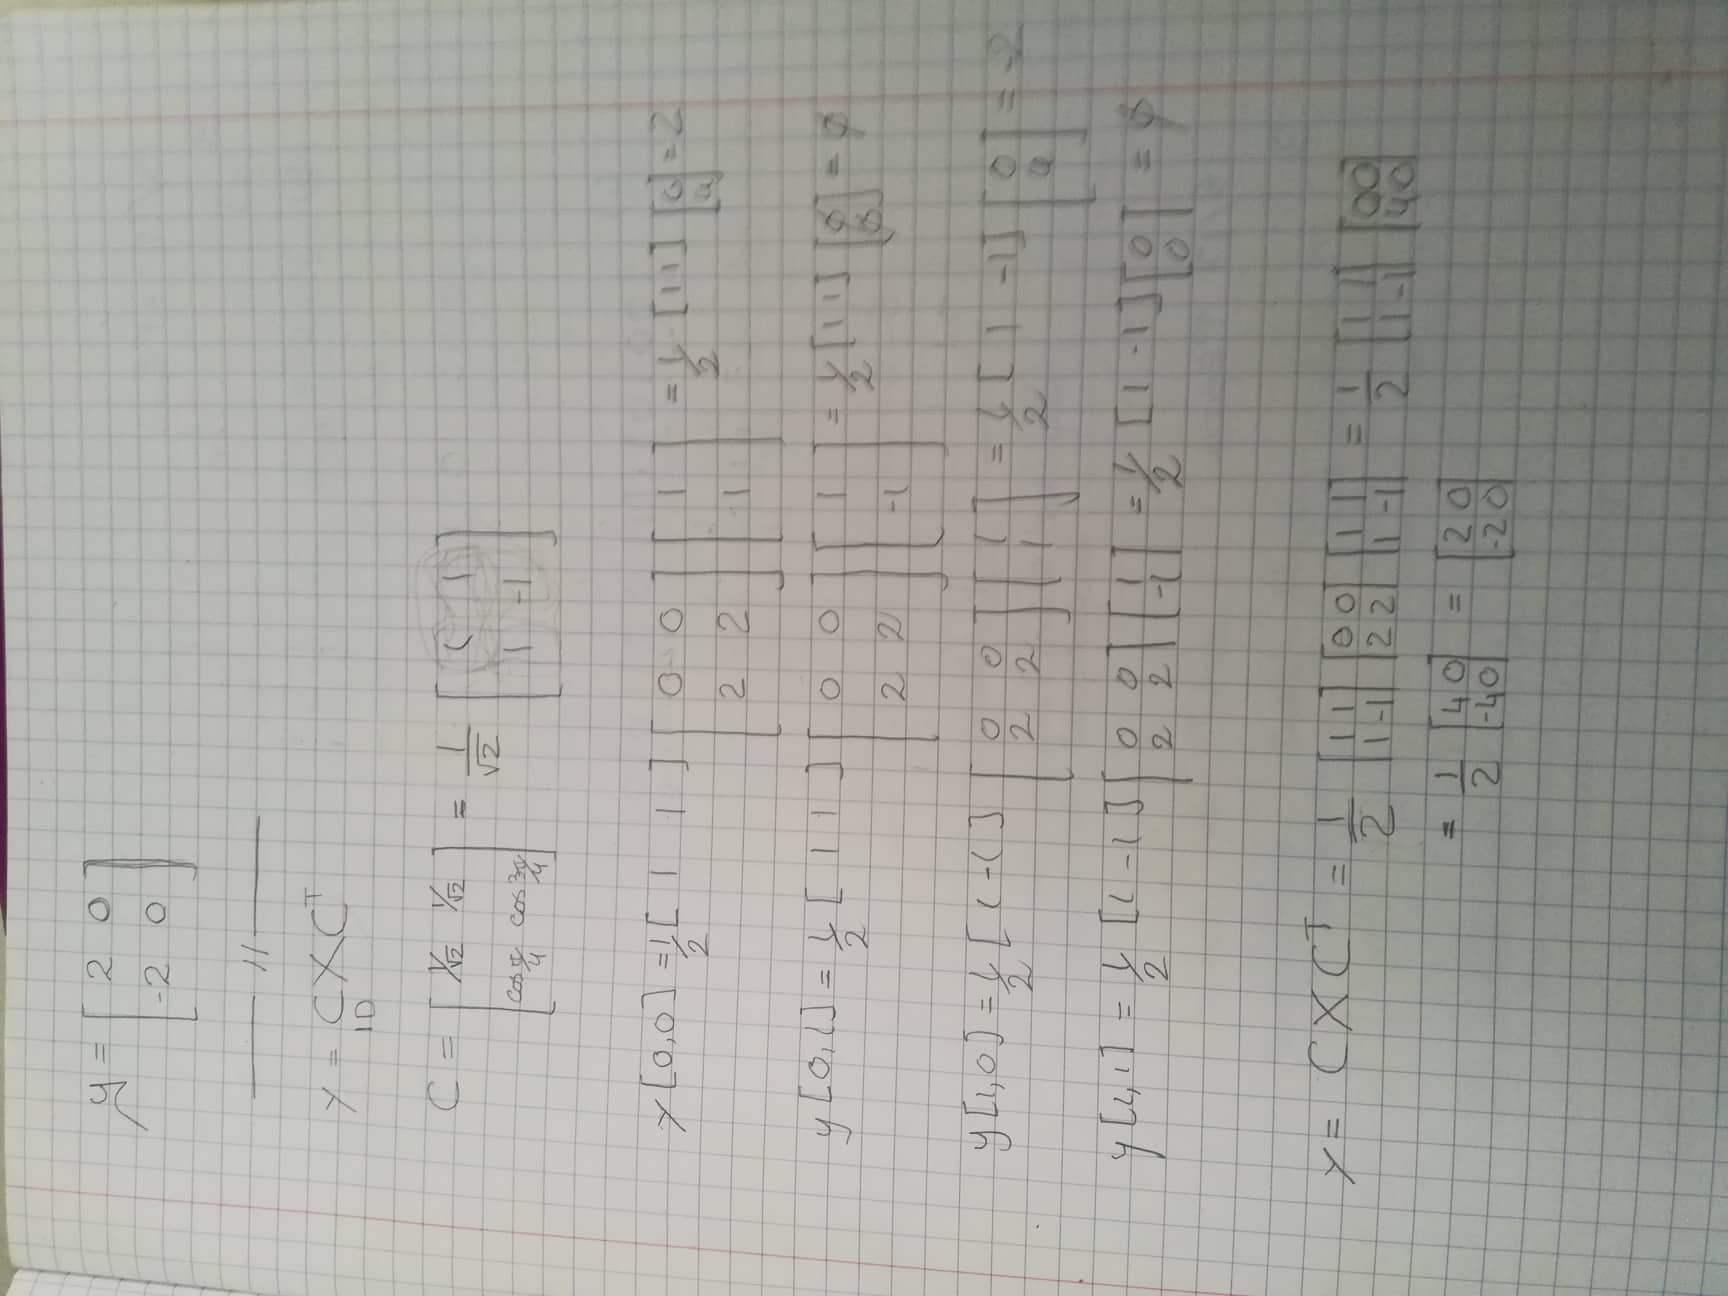 y = [ 2 0 ; -2 0 ]
— 11 —
Y = C X Cᵀ
1D
C = [ 1/√2 1/√2 ; cos π/4 cos 3π/4 ] = 1/√2 [ 1 1 ; 1 -1 ]
Y[0,0] = 1/2 [1 1] [ 0 0 ; 2 2 ] [ 1 ; 1 ] = 1/2 [1 1] [ 0 ; 4 ] = 2
y[0,1] = 1/2 [1 1] [ 0 0 ; 2 2 ] [ 1 ; -1 ] = 1/2 [1 1] [ 0 ; 0 ] = 0
y[1,0] = 1/2 [1 -1] [ 0 0 ; 2 2 ] [ 1 ; 1 ] = 1/2 [1 -1] [ 0 ; 4 ] = -2
y[1,1] = 1/2 [1 -1] [ 0 0 ; 2 2 ] [ 1 ; -1 ] = 1/2 [1 -1] [ 0 ; 0 ] = 0
Y = C X Cᵀ = 1/2 [ 1 1 ; 1 -1 ] [ 0 0 ; 2 2 ] [ 1 1 ; 1 -1 ] = 1/2 [ 1 1 ; 1 -1 ] [ 0 0 ; 4 0 ]
= 1/2 [ 4 0 ; -4 0 ] = [ 2 0 ; -2 0 ]